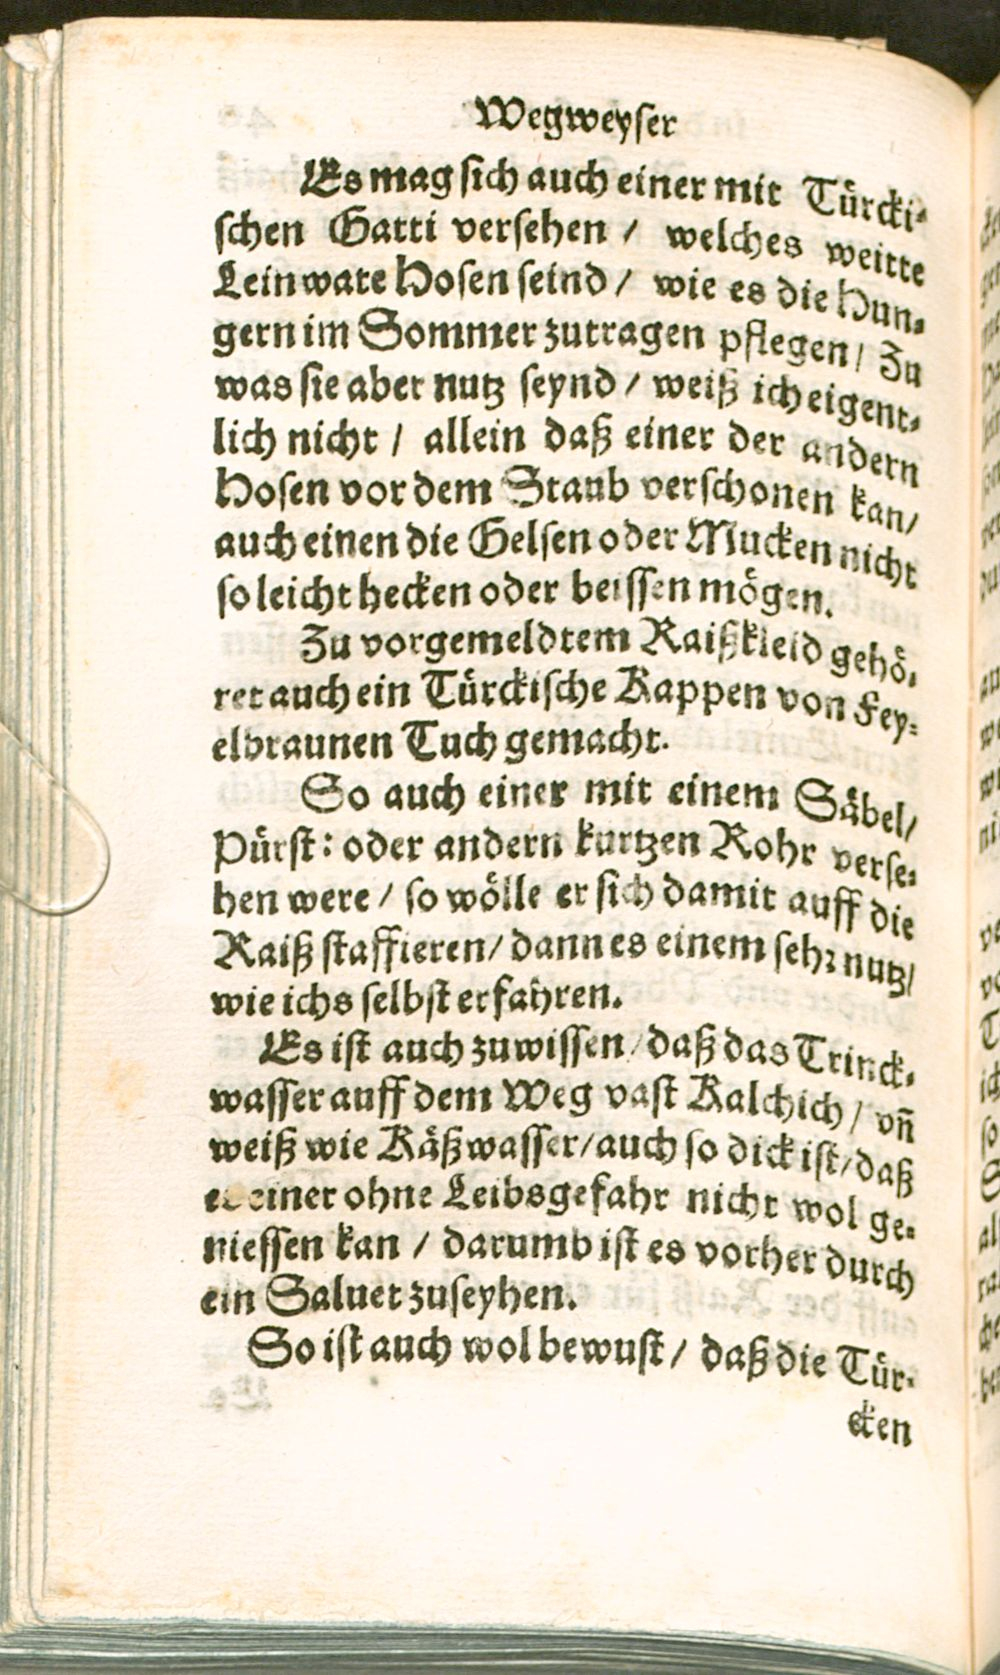 Wegweyser
Es mag sich auch einer mit Türcki⸗
schen Gatti versehen / welches weitte
Leinwate Hosen seind / wie es die Hun⸗
gern im Sommer zutragen pflegen / Zu
was sie aber nutz seynd / weiß ich eigent⸗
lich nicht / allein daß einer der andern
Hosen vor dem Staub verschonen kan /
auch einen die Gelsen oder Mucken nicht
so leicht hecken oder beissen mögen.
Zu vorgemeldtem Raißkleid gehö⸗
ret auch ein Türckische Kappen von Fey⸗
elbraunen Tuch gemacht.
So auch einer mit einem Säbel /
Pürst: oder andern kurtzen Rohr verse⸗
hen were / so wölle er sich damit auff die
Raiß staffieren / dann es einem sehr nutz /
wie ichs selbst erfahren.
Es ist auch zuwissen / daß das Trinck⸗
wasser auff dem Weg vast Kalchich / vñ
weiß wie Käßwasser / auch so dick ist / daß
einer ohne Leibsgefahr nicht wol ge⸗
niessen kan / darumb ist es vorher durch
ein Saluet zuseyhen.
So ist auch wol bewust / daß die Tür⸗
cken